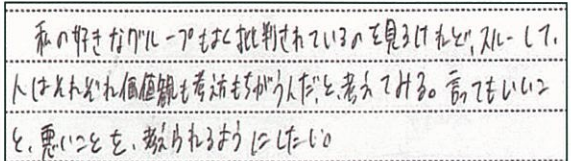 私の好きなグループもよく批判されているのを見るけれど、スルーして、
人はそれぞれ価値観も考え方もちがうんだ、と、考えてみる。言ってもいいこ
と、悪いことを、考えられるようにしたい。